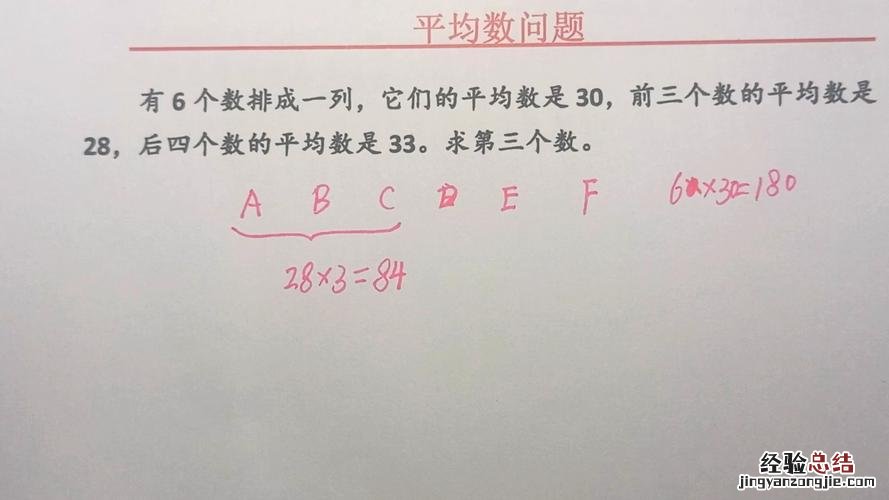 平均数问题
有6个数排成一列，它们的平均数是30，前三个数的平均数是
28，后四个数的平均数是33。求第三个数。
A B C D E F 6×30=180
28×3=84
经验总结
jingyanzongjie.com